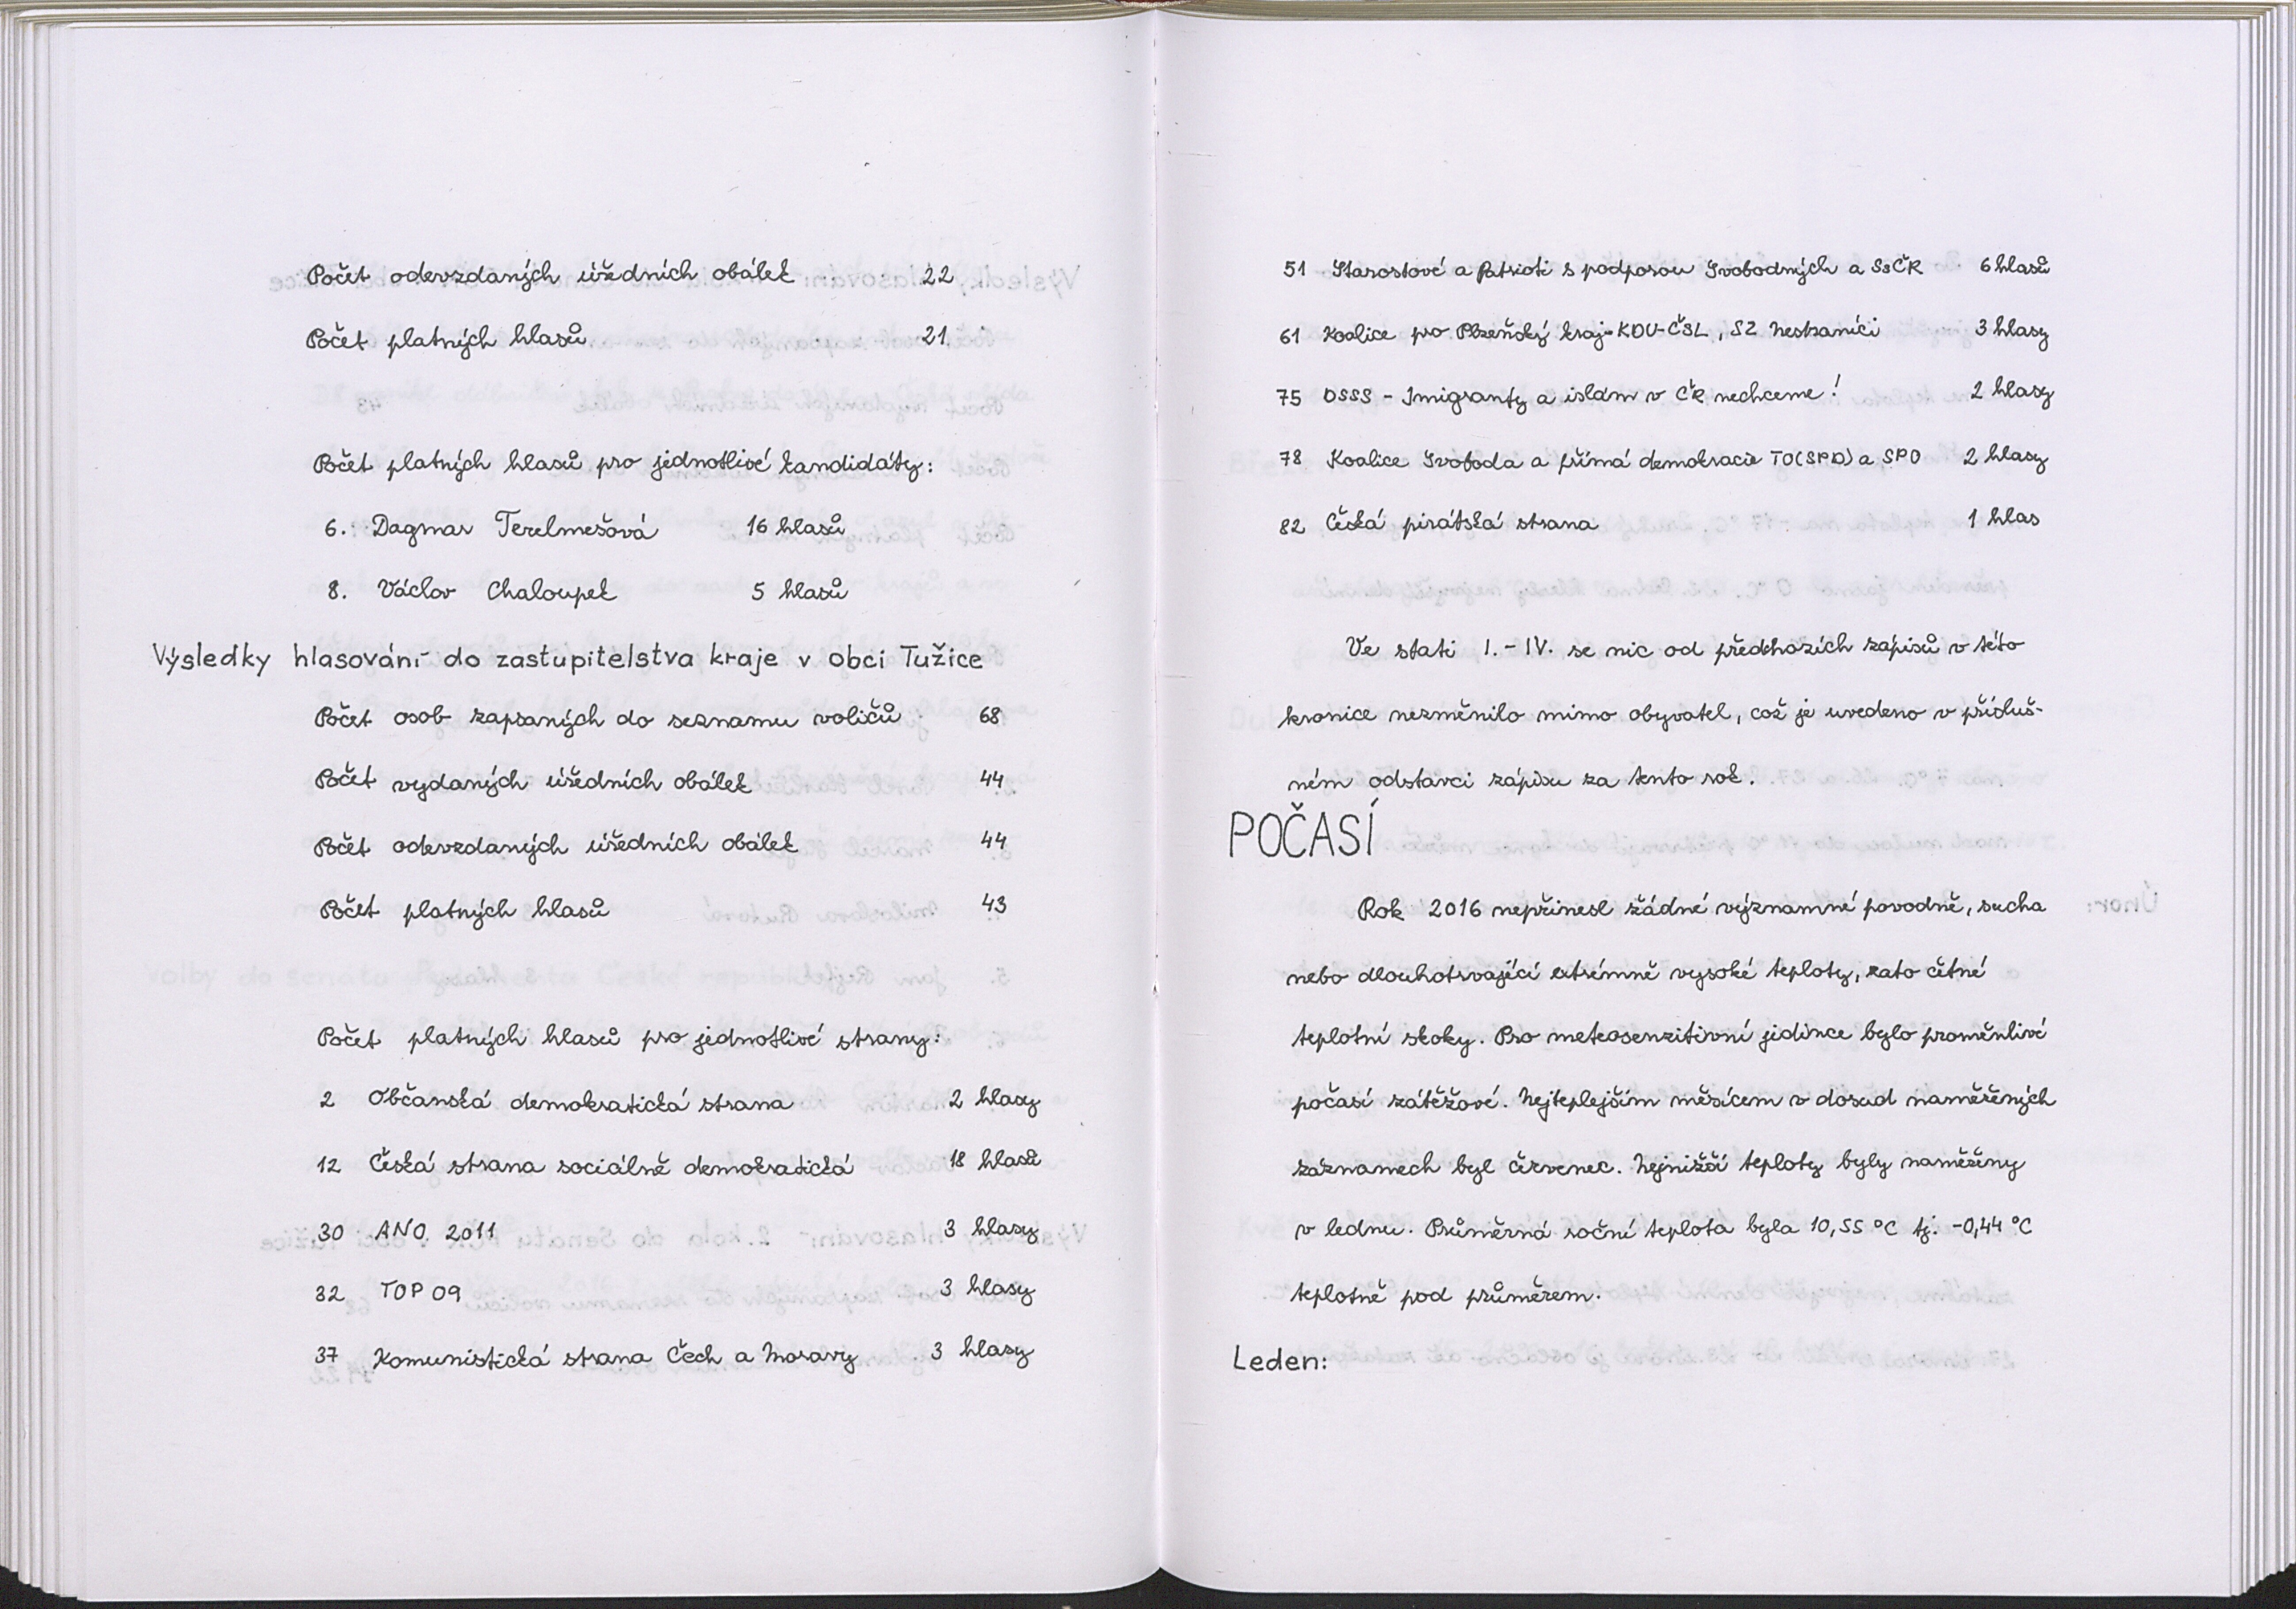 Počet odevzdaných úředních obálek 22
Počet platných hlasů 21
Počet platných hlasů pro jednotlivé kandidáty:
6. Dagmar Terelmešová 16 hlasů
8. Václav Chaloupek 5 hlasů
Výsledky hlasování do zastupitelstva kraje v obci Tužice
Počet osob zapsaných do seznamu voličů 68
Počet vydaných úředních obálek 44
Počet odevzdaných úředních obálek 44
Počet platných hlasů 43
Počet platných hlasů pro jednotlivé strany:
2 Občanská demokratická strana 2 hlasy
12 Česká strana sociálně demokratická 18 hlasů
30 ANO 2011 3 hlasy
32 TOP 09 3 hlasy
37 Komunistická strana Čech a Moravy 3 hlasy
51 Starostové a Patrioti s podporou Svobodných a SsČR 6 hlasů
61 Koalice pro Plzeňský kraj-KDU-ČSL, SZ Nestraníci 3 hlasy
75 DSSS - Imigranty a islám v ČR nechceme! 2 hlasy
78 Koalice Svoboda a přímá demokracie TO(SPD) a SPO 2 hlasy
82 Česká pirátská strana 1 hlas
Ve stati I.-IV. se nic od předchozích zápisů v této
kronice nezměnilo mimo obyvatel, což je uvedeno v přísluš-
ném odstavci zápisu za tento rok.
POČASÍ
Rok 2016 nepřinesl žádné významné povodně, sucha
nebo dlouhotrvající extrémně vysoké teploty, zato četné
teplotní skoky. Pro meteosenzitivní jedince bylo proměnlivé
počasí zátěžové. Nejteplejším měsícem v dosud naměřených
záznamech byl červenec. Nejnižší teploty byly naměřeny
v lednu. Průměrná roční teplota byla 10,55 °C tj. -0,44 °C
teplotně pod průměrem.
Leden: